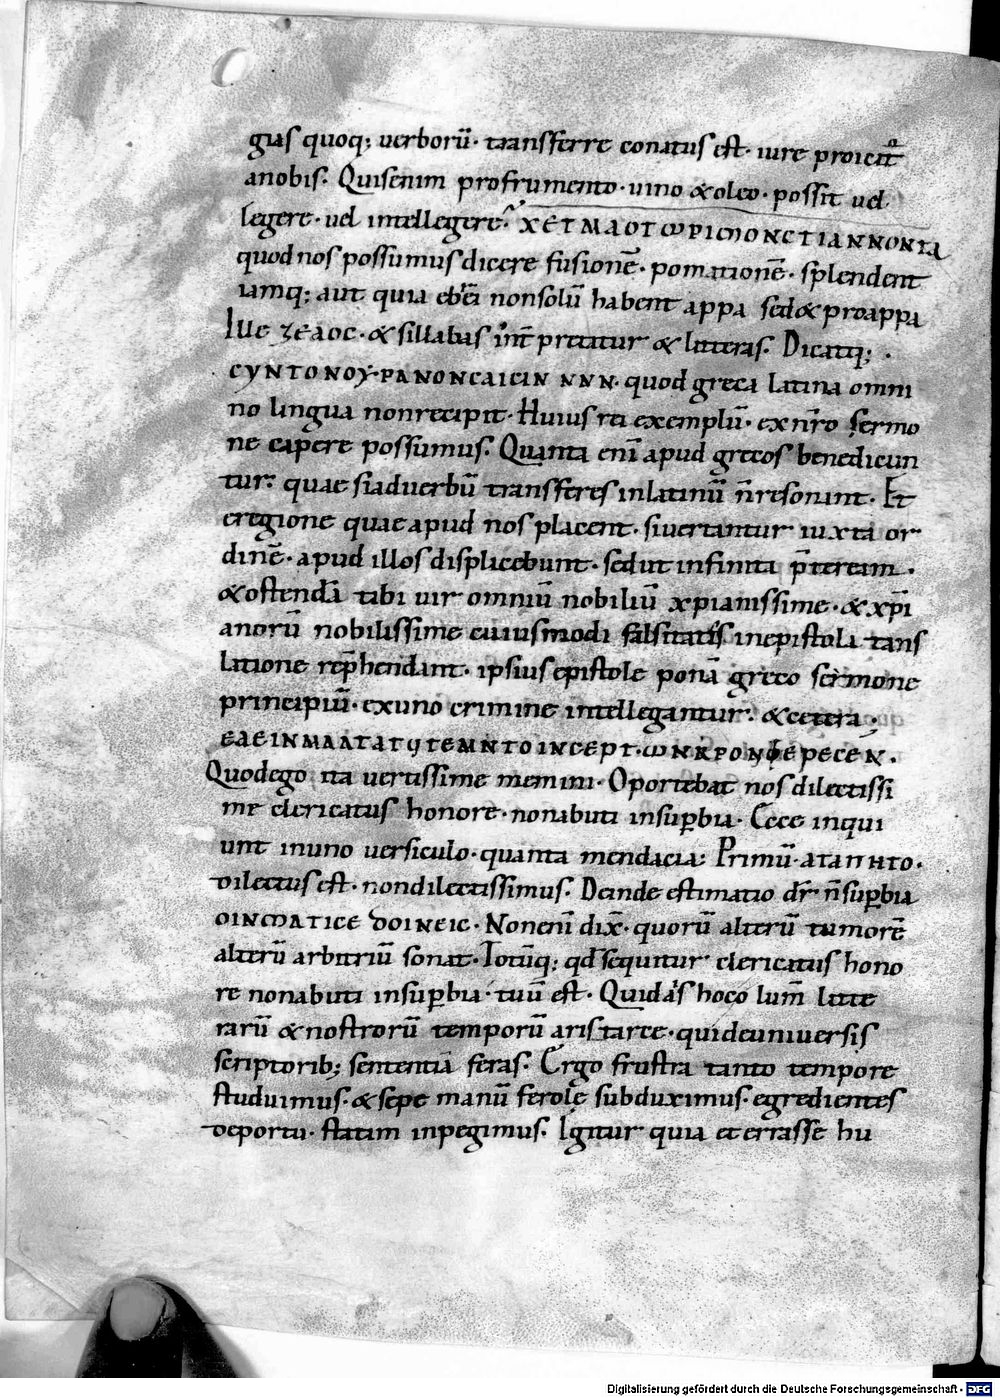 gias quoq; uerborū· transferre conatus est· iure proicit͛
anobis. Quisenim profrumento· uino &oleo· possit uel
legere· uel intellegere· ΧΕΤΜΑΟΤωΡΙϹΠΟΝϹΤΙΑΝΝΟΝΤΑ
quod nos possumus dicere fusionē· pomationē· splendent
iamq; aut quia ebrei nonsolū habent appa sed& proappa
 & sillabas int̄pretatur & litteras. Dicatq; ·
ϹΥΝΤΟΝΟΥ·ΡΑΝΟΝϹΑΙϹΙΝ ΝΝΝ· quod greca latina omni
no lingua nonrecipit· Huius rei exemplū· ex nr̄o sermo
ne capere possumus. Quanta enī apud grecos benedicun
tur· quae siaduerbū transferes inlatinū n̄resonant. Et
eregione quae apud nos placent· siuertantur iuxta or
dinē· apud illos displicebunt· sedut infinita p̄teream·
&ostendā tibi uir omniū nobiliū xp̄ianissime· & xp̄i
anorū nobilissime cuiusmodi falsitatis inepistola trans
latione rep̄hendant· ipsius epistole ponā greco sermone
principiū· exuno crimine intellegantur· &cetera·
ΕΔΕΙΝΜΑΛΤΑΤΑΤΥΤΕΜΝΤΟΙΝϹΕΡΤ·ωΝΚΡΟΝΦΕΡΕϹΕΝ.
Quodego ita uertissime memini· Oportebat nos dilectissi
me clericatus honore· nonabuti insuꝑbia· Ecce inqui
unt inuno uersiculo· quanta mendacia· Primū· ΑΓΑΠΗΤΟ·
dilectus est· nondilectissimus. Deinde estimatio dr̄ n̄suꝑbia
 Nonenī dix̄· quorū alterū tumorē
alterū arbitriū sonat· Totūq; qd̄ sequitur clericatus hono
re nonabuti insuꝑbia· tuū est· Quidais hoco lum̄ litte
rarū &nostrorū temporū aristarce· quideuniuersis
scriptorib; sententiā feras. Ergo frustra tanto tempore
studuimus· &sepe manū ferole subduximus· egredientes
deportu· statim inpegimus. Igitur quia et errasse hu
Digitalisierung gefördert durch die Deutsche Forschungsgemeinschaft - DFG